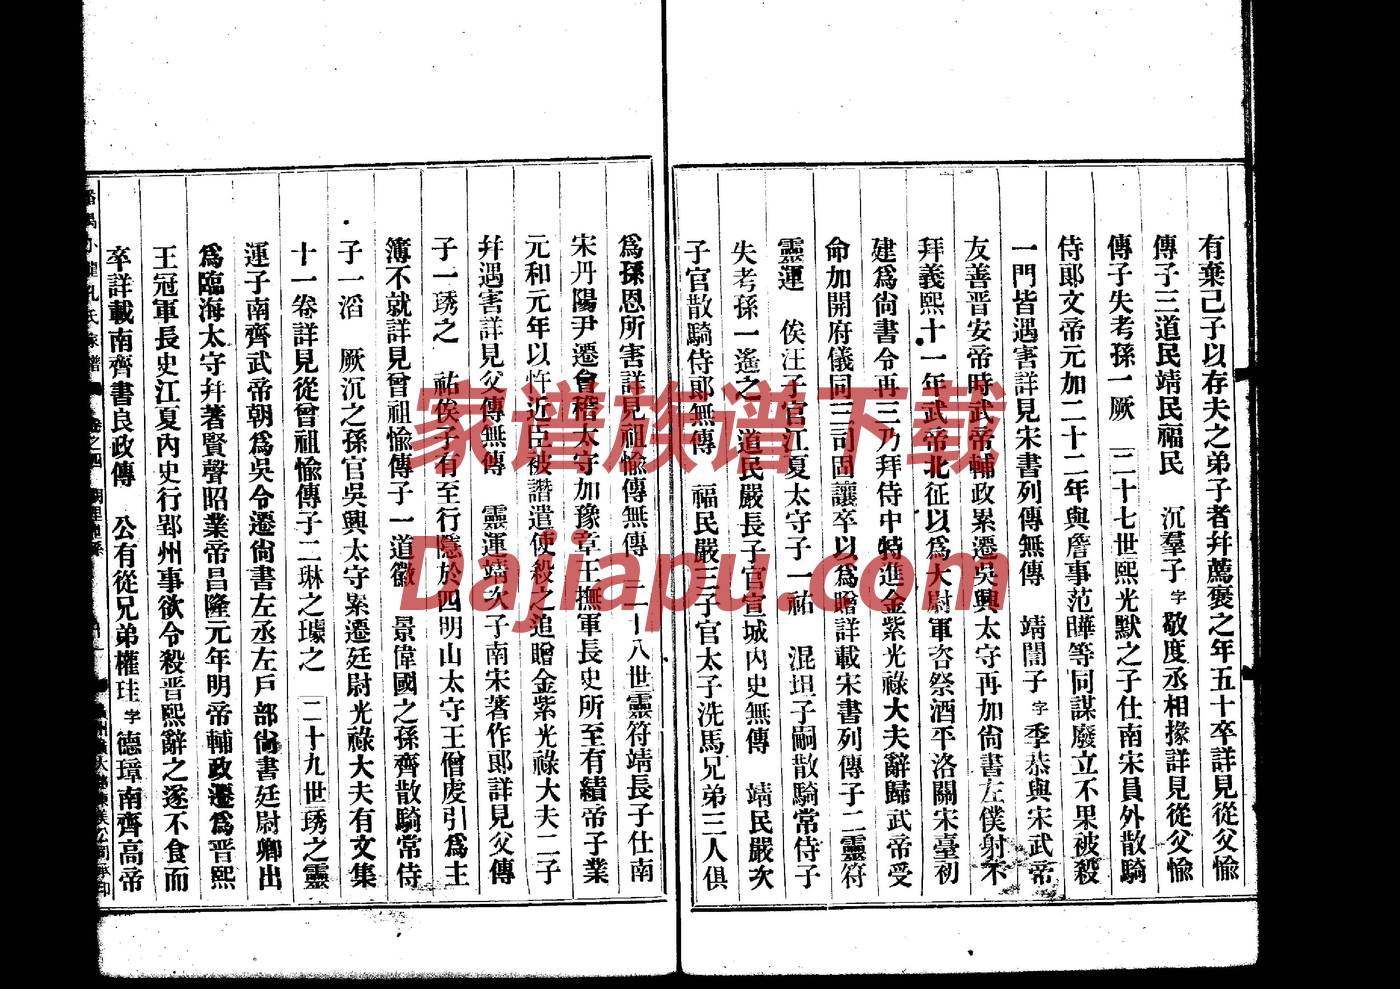 有棄己子以存夫之弟子者幷薦褒之年五十卒詳見從父愉
傳子三道民靖民福民 沉羣子字敬度丞相掾詳見從父愉
傳子失考孫一厥 二十七世熙光默之子仕南宋員外散騎
侍郞文帝元加二十二年與詹事范曄等同謀廢立不果被殺
一門皆遇害詳見宋書列傳無傳 靖誾子字季恭與宋武帝
友善晋安帝時武帝輔政累遷吳興太守再加尙書左僕射不
拜義熙十一年武帝北征以爲大尉軍咨祭酒平洛關宋臺初
建爲尙書令再三乃拜侍中特進金紫光祿大夫辭歸武帝受
命加開府儀同三司固讓卒以爲贈詳載宋書列傳子二靈符
靈運 俟汪子官江夏太守子一祐 混坦子嗣散騎常侍子
失考孫一遙之 道民嚴長子官宣城內史無傳 靖民嚴次
子官散騎侍郞無傳 福民嚴三子官太子洗馬兄弟三人俱
爲孫恩所害詳見祖愉傳無傳 二十八世靈符靖長子仕南
宋丹陽尹遷會稽太守加豫章王撫軍長史所至有績帝子業
元和元年以忤近臣被譖遣使殺之追贈金紫光祿大夫二子
幷遇害詳見父傳無傳 靈運靖次子南宋著作郞詳見父傳
子一琇之 祐俟子有至行隱於四明山太守王僧虔引爲主
簿不就詳見曾祖愉傳子一道徽 景偉國之孫齊散騎常侍
子一滔 厥沉之孫官吳興太守累遷廷尉光祿大夫有文集
十一卷詳見從曾祖愉傳子二琳之璩之 二十九世琇之靈
運子南齊武帝朝爲吳令遷尙書左丞左戶部尙書廷尉卿出
爲臨海太守幷著賢聲昭業帝昌隆元年明帝輔政遷爲晋熙
王冠軍長史江夏內史行郢州事欲令殺晋熙辭之遂不食而
卒詳載南齊書良政傳 公有從兄弟權珪字德璋南齊高帝
家谱族谱下载
Dajiapu.com